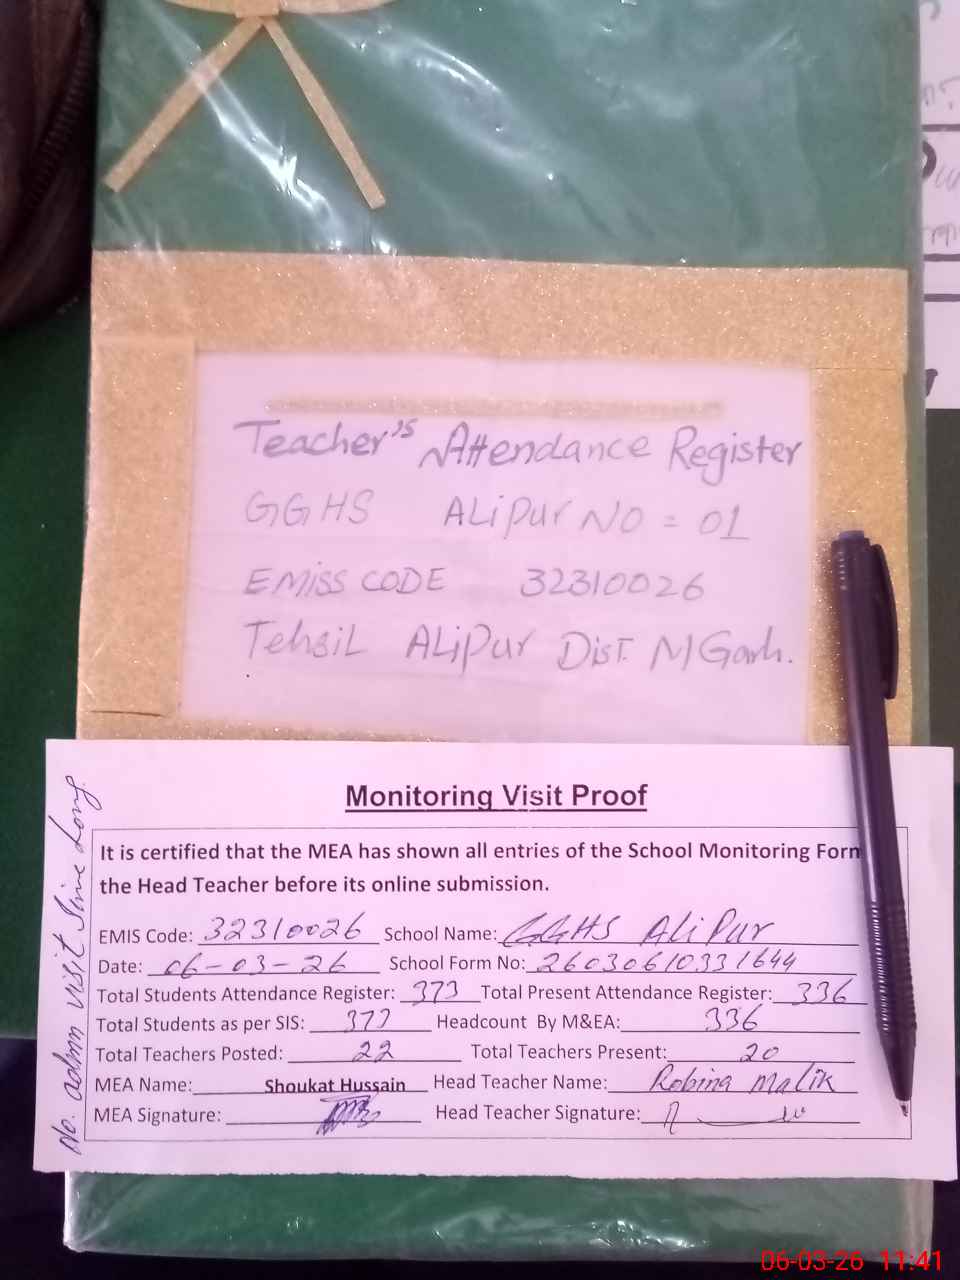 Teacher's Attendance Register
GGHS ALiPur NO = 01
EMISS CODE 32310026
Tehsil ALiPur Dist. MGarh.
Monitoring Visit Proof
It is certified that the MEA has shown all entries of the School Monitoring Form
the Head Teacher before its online submission.
EMIS Code: 32310026 School Name: GGHS ALiPur
Date: 06-03-26 School Form No: 26030610331644
Total Students Attendance Register: 373 Total Present Attendance Register: 336
Total Students as per SIS: 373 Headcount By M&EA: 336
Total Teachers Posted: 22 Total Teachers Present: 20
MEA Name: Shoukat Hussain Head Teacher Name: Robina Malik
MEA Signature: Head Teacher Signature:
No. admn visit Sine Long
06-03-26 11:41